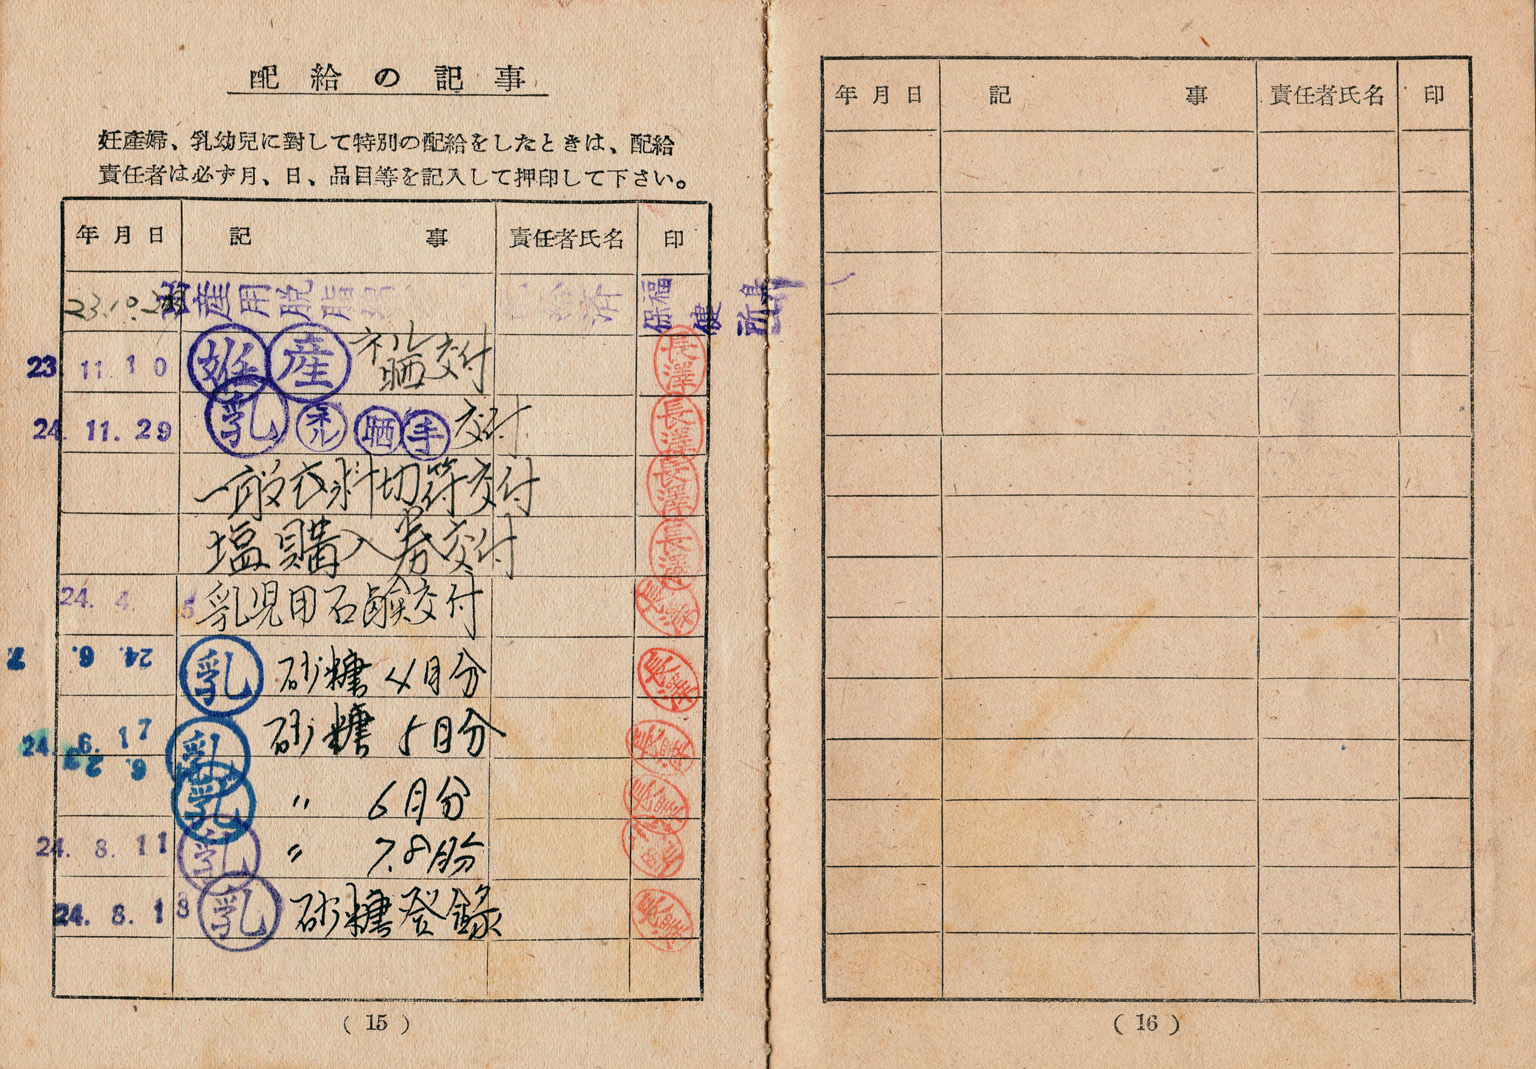 配給の記事
妊産婦、乳幼兒に對して特別の配給をしたときは、配給
責任者は必ず月、日、品目等を記入して押印して下さい。
年月日 記事 責任者氏名 印
23.10. 産用脱脂 済 福島 保健所
23 11.10 妊 産 ネル 晒 交付 長澤
24. 11. 29 乳 ネル 晒 手 交付 長澤
一般衣料切符交付 長澤
塩購入券交付 長澤
24. 4. 5 乳児用石鹸交付 長澤
24. 6. 2 乳 砂糖 4月分 長澤
24. 6. 17 乳 砂糖 5月分 長澤
6. 23 乳 〃 6月分 長澤
24. 8. 11 乳 〃 7.8月分 長澤
24. 8. 18 乳 砂糖登録 長澤
( 15 )
年月日 記事 責任者氏名 印
( 16 )